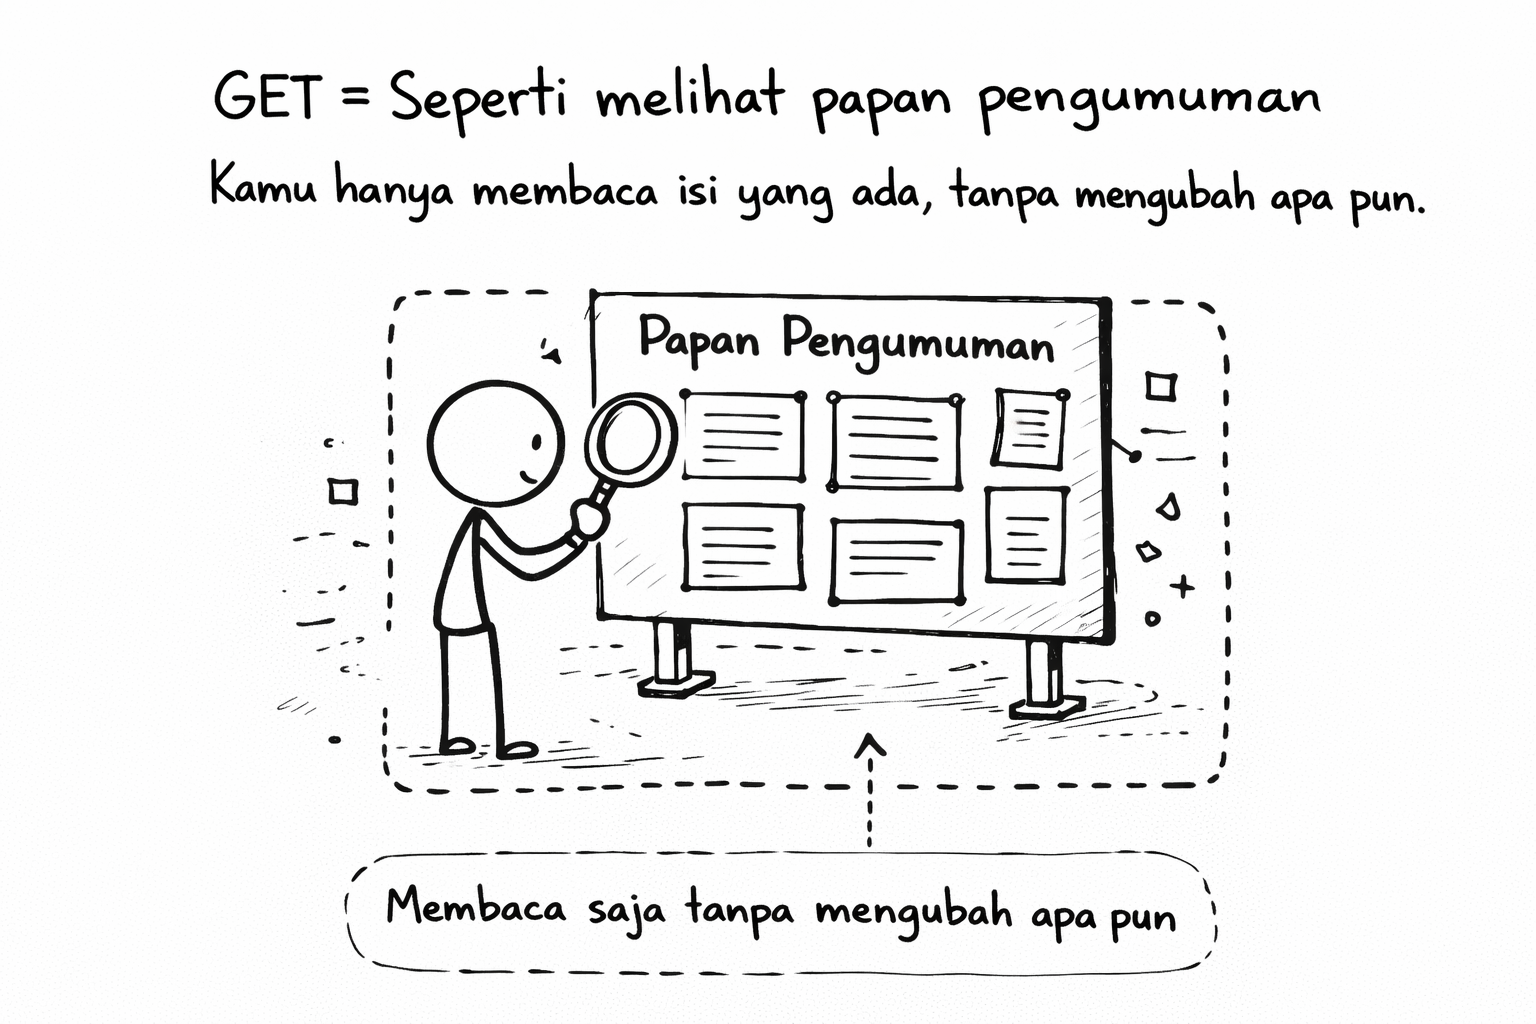 GET = Seperti melihat papan pengumuman
Kamu hanya membaca isi yang ada, tanpa mengubah apa pun.
Papan Pengumuman
Membaca saja tanpa mengubah apa pun